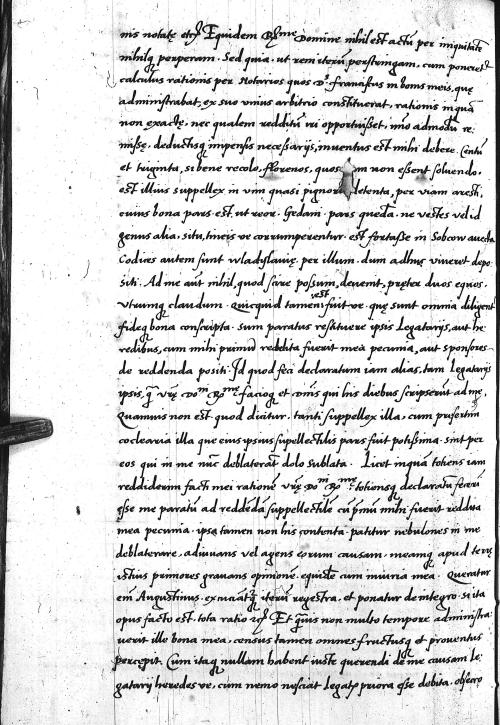 mis notatę etc. Equidem Rme Domine nihil est actum per iniquitatem
nihilq perperam. Sed quia, ut rem iterum perstringam, cum poneret
calculus rationis per Notarios quos D. Franciscus in bonis meis, quę
administrabat, ex suo unius arbitrio constituerat, rationis inquam
non exactę, nec qualem redditum iri oportuisset, imo admodum re
missę, deductisq impensis necessarijs, inventus est mihi debere Centum
et triginta, si bene recolo, florenos, quos non essent solvendo,
est illius suppellex in vim quasi pignoris detenta, per viam aresti,
cuius bona pars est, ut reor, Gedani, pars quędam, ne vestes vel id
genus alia, situ, tineis ve corrumperentur, est fortasse in Sobcow avecta
Codices autem sunt Wladislavię, per illum, dum adhuc viveret depo
siti. Ad me autem nihil, quod scire possum, devenit, pręter duos equos,
utrumq claudum. Quicquid tamen est, fuit ve, quę sunt omnia diligenti
fideq bona conscripta, sum paratus restituere ipsis Legatarijs, aut hę
redibus, cum mihi primum reddita fuerit mea pecunia, aut sponsores
de reddenda positi. Id quod feci declaratum iam alias, tam Legatarijs
ipsis, q Vrę Dom Rme, facioq et Dnis qui his diebus scripserunt ad me,
Quamvis non est quod dicitur, tanti suppellex illa, cum prę sertim
coclearia illa que eius ipsius supellectilis pars fuit potissima, sint per
eos qui in me nunc deblaterant dolo sublata. Licet inquam totiens iam
reddiderim facti mei rationem Vrę Dom Rme, totiensq declaratum fecerim
esse me paratum ad reddendam suppellectilem cum primum mihi fuerit reddita
mea pecunia, ipsa tamen non his contenta, patitur nebulones in me
deblaterare, adiuvans vel agens eorum causam, meamq apud terrę
istius primores gravans opinionem, equidem cum iniuria mea. Queratur
enim Augustinus, excutiantur iterum regestra, et ponatur de integro, si ita
opus facto est, tota ratio etc. Et quamvis non multo tempore administra
verit ille bona mea, census tamen omnes fructusq et proventus
percepit. Cum itaq nullam habent iuste querendi de me causam le
gatarij heredes ve, cum nemo nesciat legatis priora esse debita, obsecro